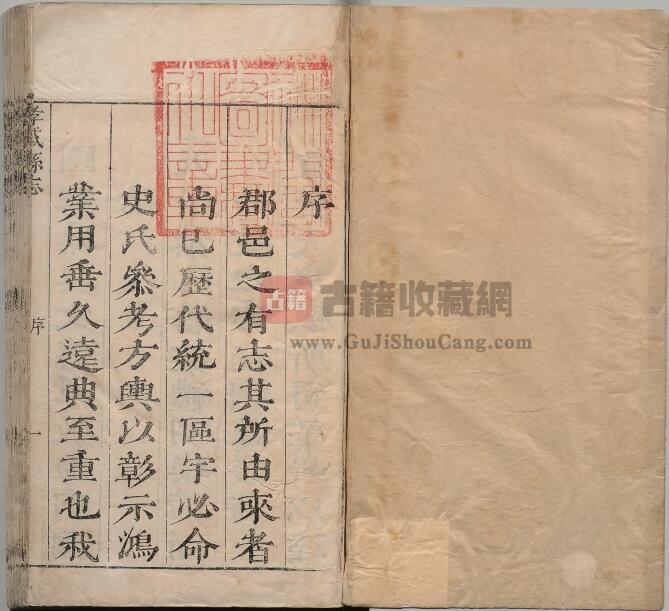 序
郡邑之有志其所由來者
尚已歷代統一區宇必命
史氏參考方輿以彰示鴻
業用垂久遠典至重也我
縣志
序
一
古籍
古籍收藏網
www.GuJiShouCang.com